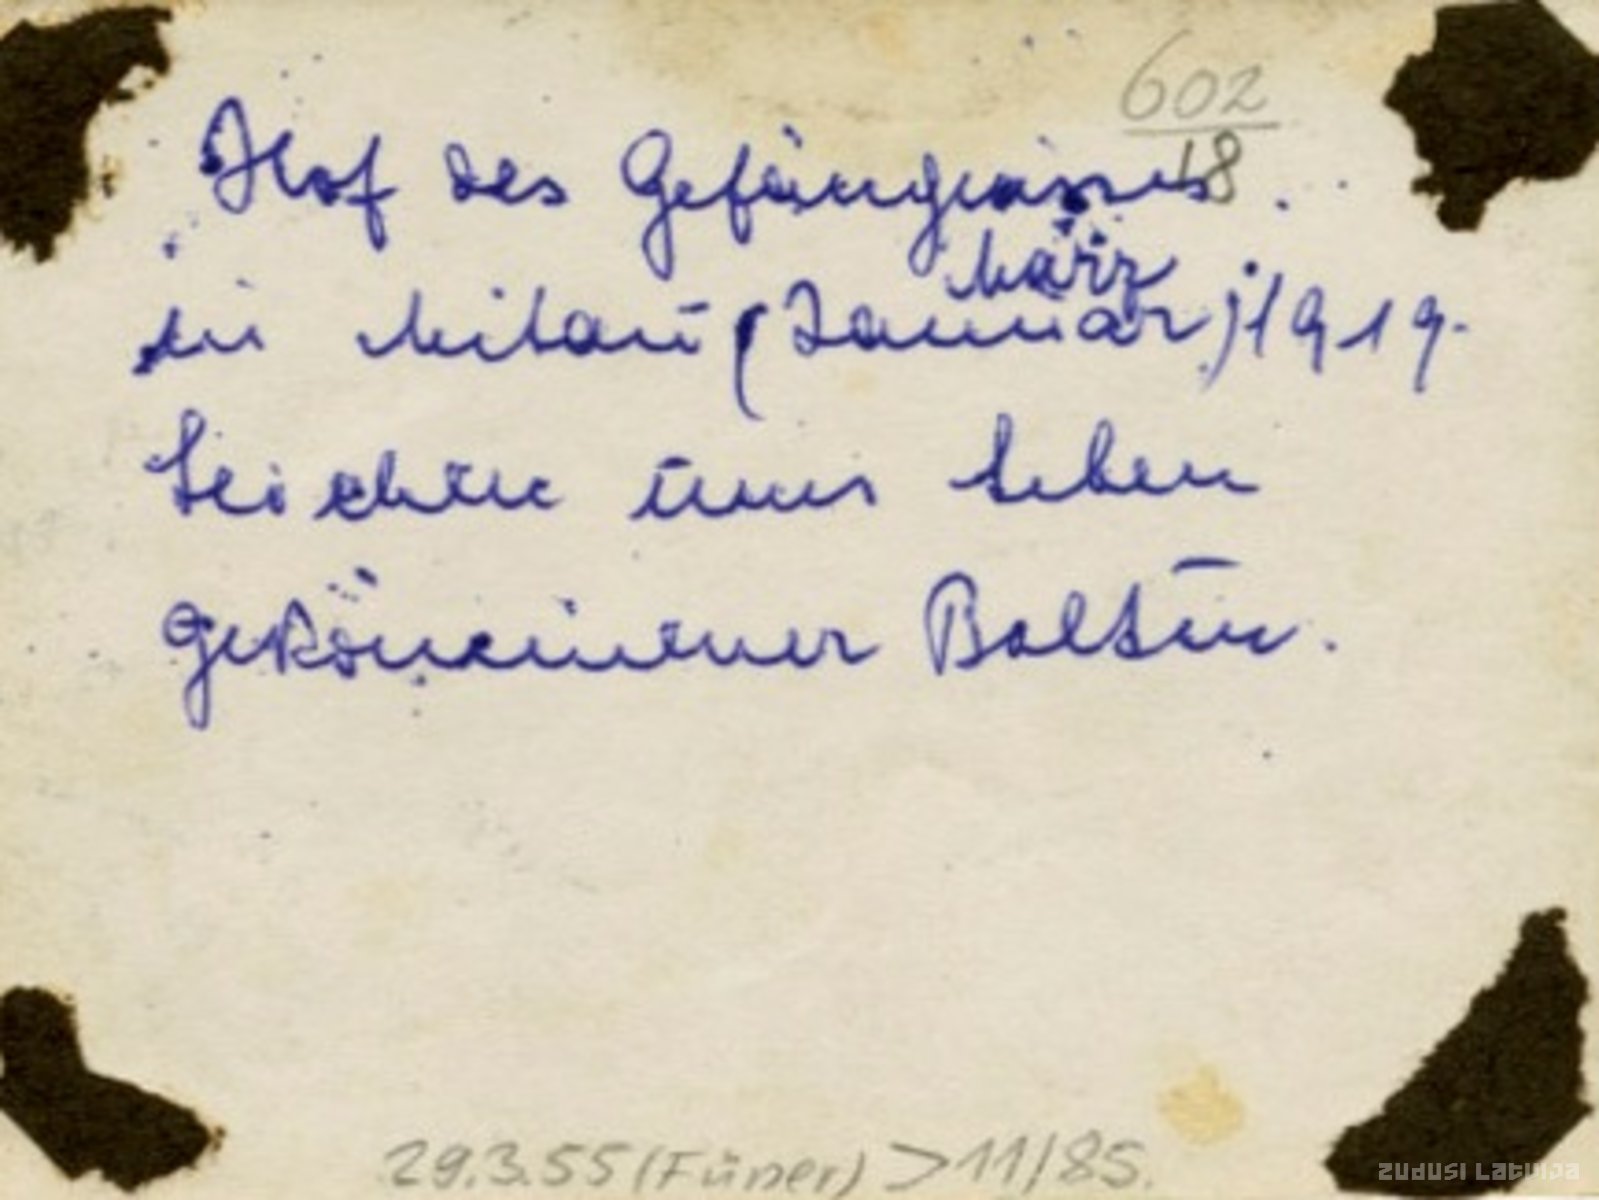 602
18
Hof des Gefängnisses
März
in Mitau (Januar) 1919.
Leichen ums Leben
gekommener Balten.
29.3.55 (Füner) > 11/85.
ZUDUSI LATVIJA